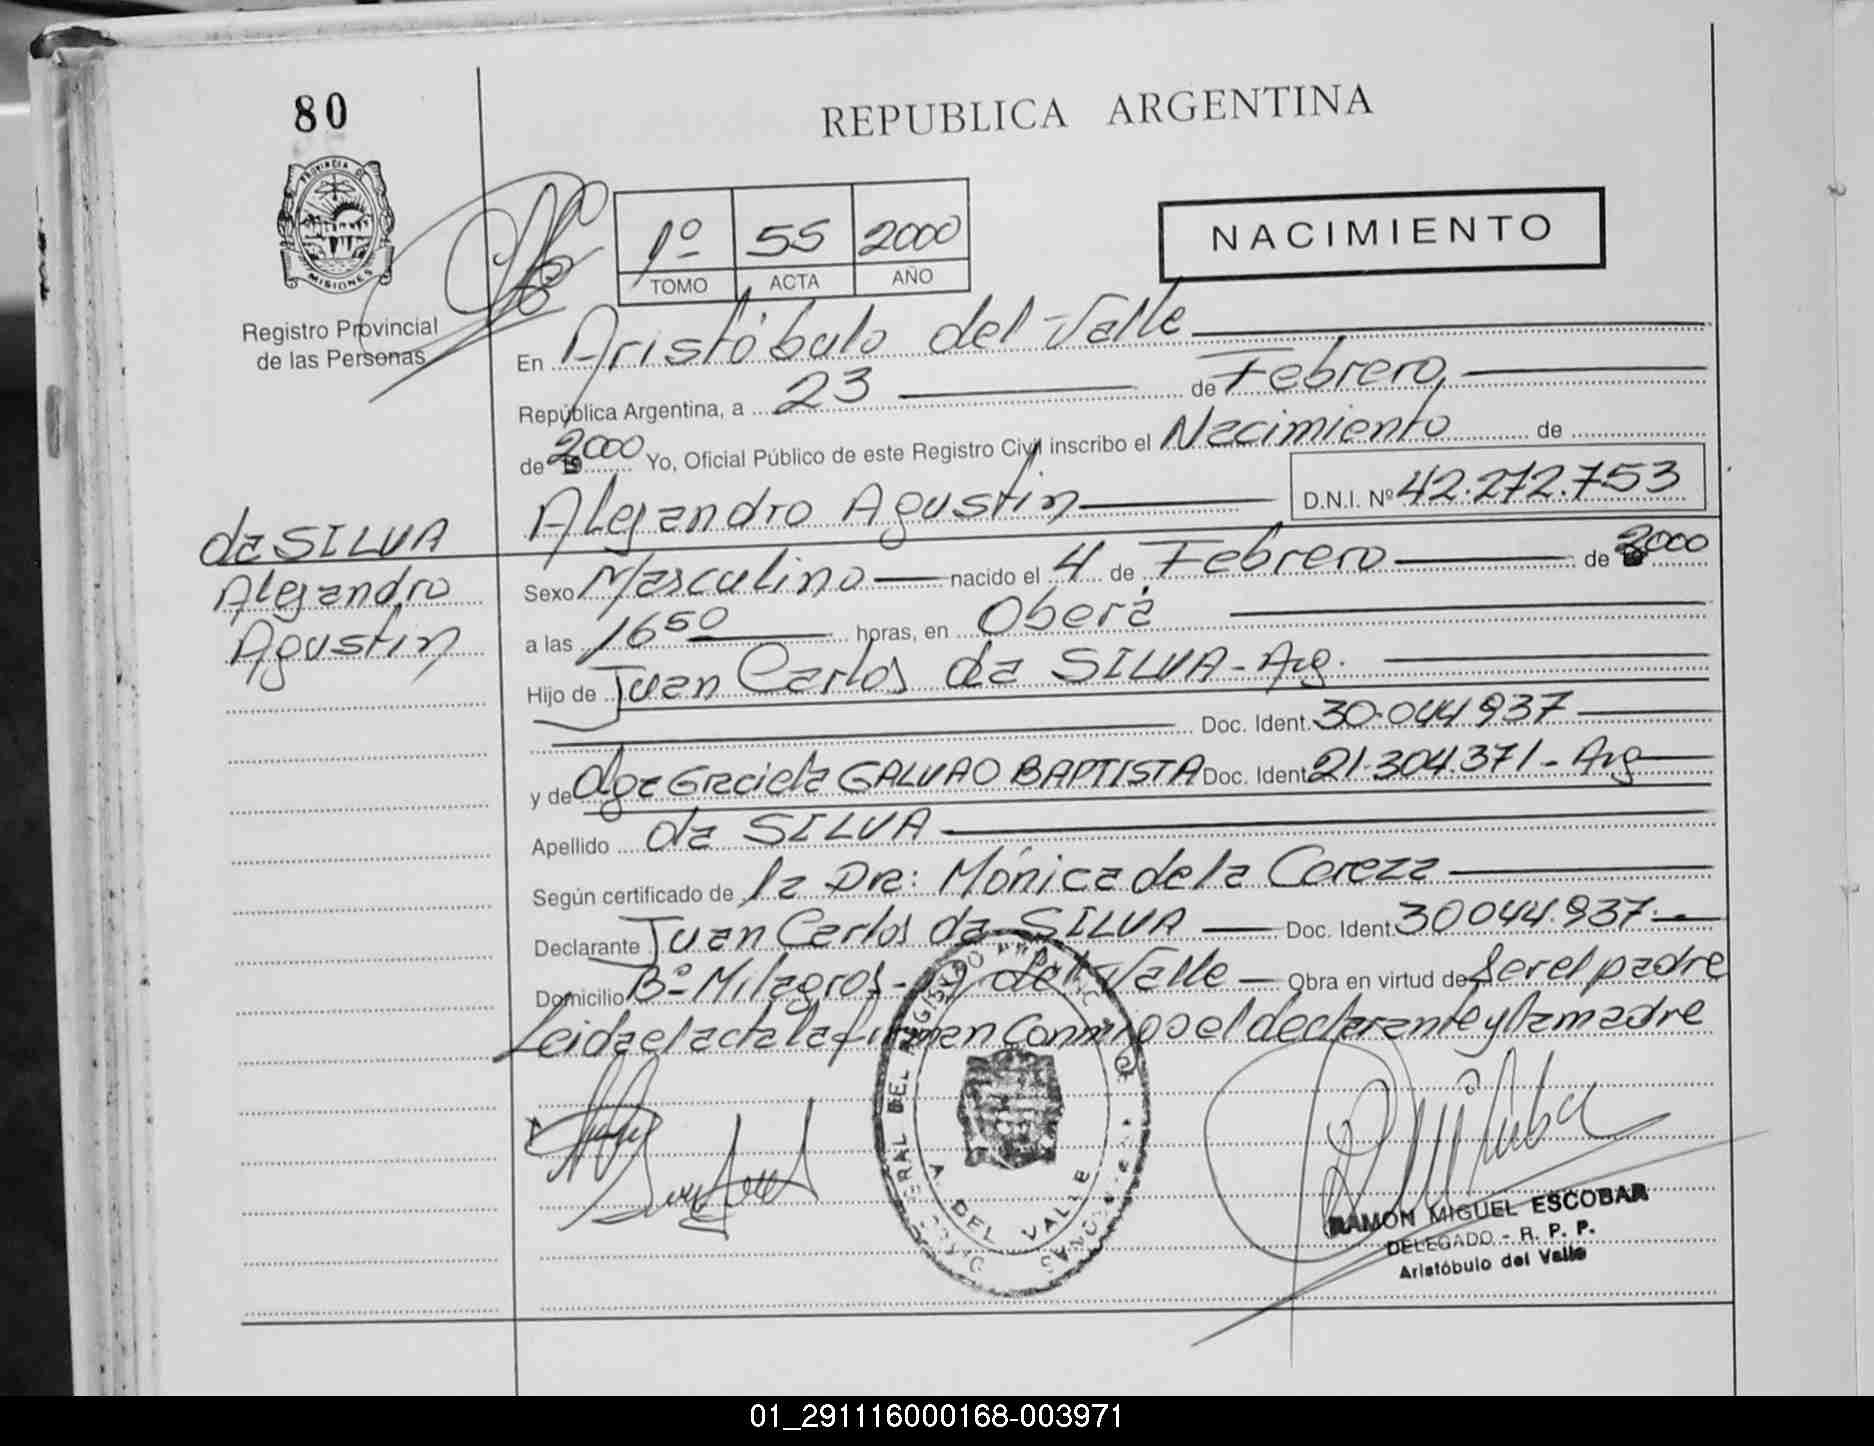 80
REPUBLICA ARGENTINA
PROVINCIA DE
MISIONES
Registro Provincial
de las Personas
1º 55 2000
TOMO ACTA AÑO
NACIMIENTO
En Aristóbulo del Valle
República Argentina, a 23 de Febrero,
de 2000 Yo, Oficial Público de este Registro Civil inscribo el Nacimiento de
Alejandro Agustin D.N.I. Nº 42.272.753
da SILVA
Alejandro
Agustin
Sexo Masculino nacido el 4 de Febrero de 2000
a las 16 50 horas, en Oberá
Hijo de Juan Carlos da SILVA - Arg.
Doc. Ident. 30.044.937
y de Olga Graciela GALVAO BAPTISTA Doc. Ident. 21.304.371 - Arg
Apellido da SILVA
Según certificado de la Dra: Mónica de la Coreza
Declarante Juan Carlos da SILVA Doc. Ident. 30044.937.-
Domicilio Bº Milagros - del Valle Obra en virtud de ser el padre
Leida el acta la firman conmigo el declarante y la madre
A. DEL VALLE
RAMON MIGUEL ESCOBAR
DELEGADO - R. P. P.
Aristóbulo del Valle
01_291116000168-003971